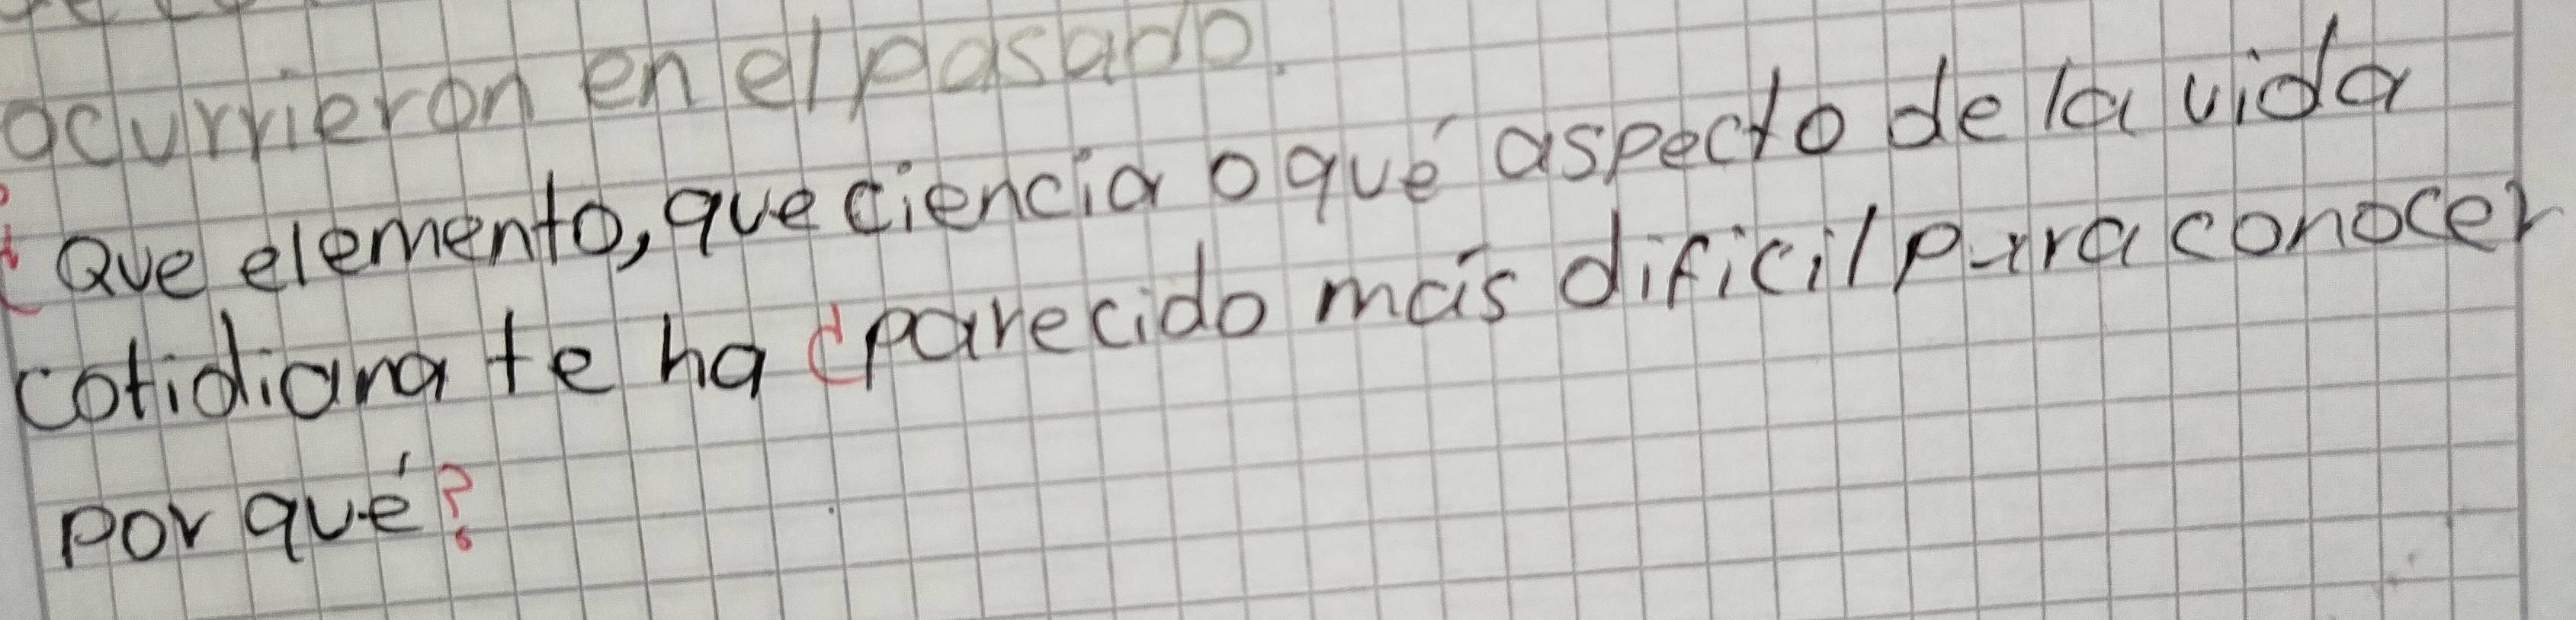 ocurrieron en el pasado.
¿Que elemento, que ciencia o qué aspecto de la vida
cotidiana te ha parecido más dificil para conocer
por qué?